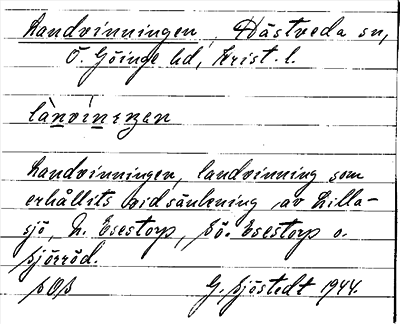 Landvinningen, Hästveda sn,
Ö. Göinge hd, Krist. l.
lànvíningen
Landvinningen, landvinning som
erhållits vid sänkning av Lilla-
sjö, N. Esestorp, SÖ. Esestorp o.
Sjörröd.
G. Sjöstedt 1944.